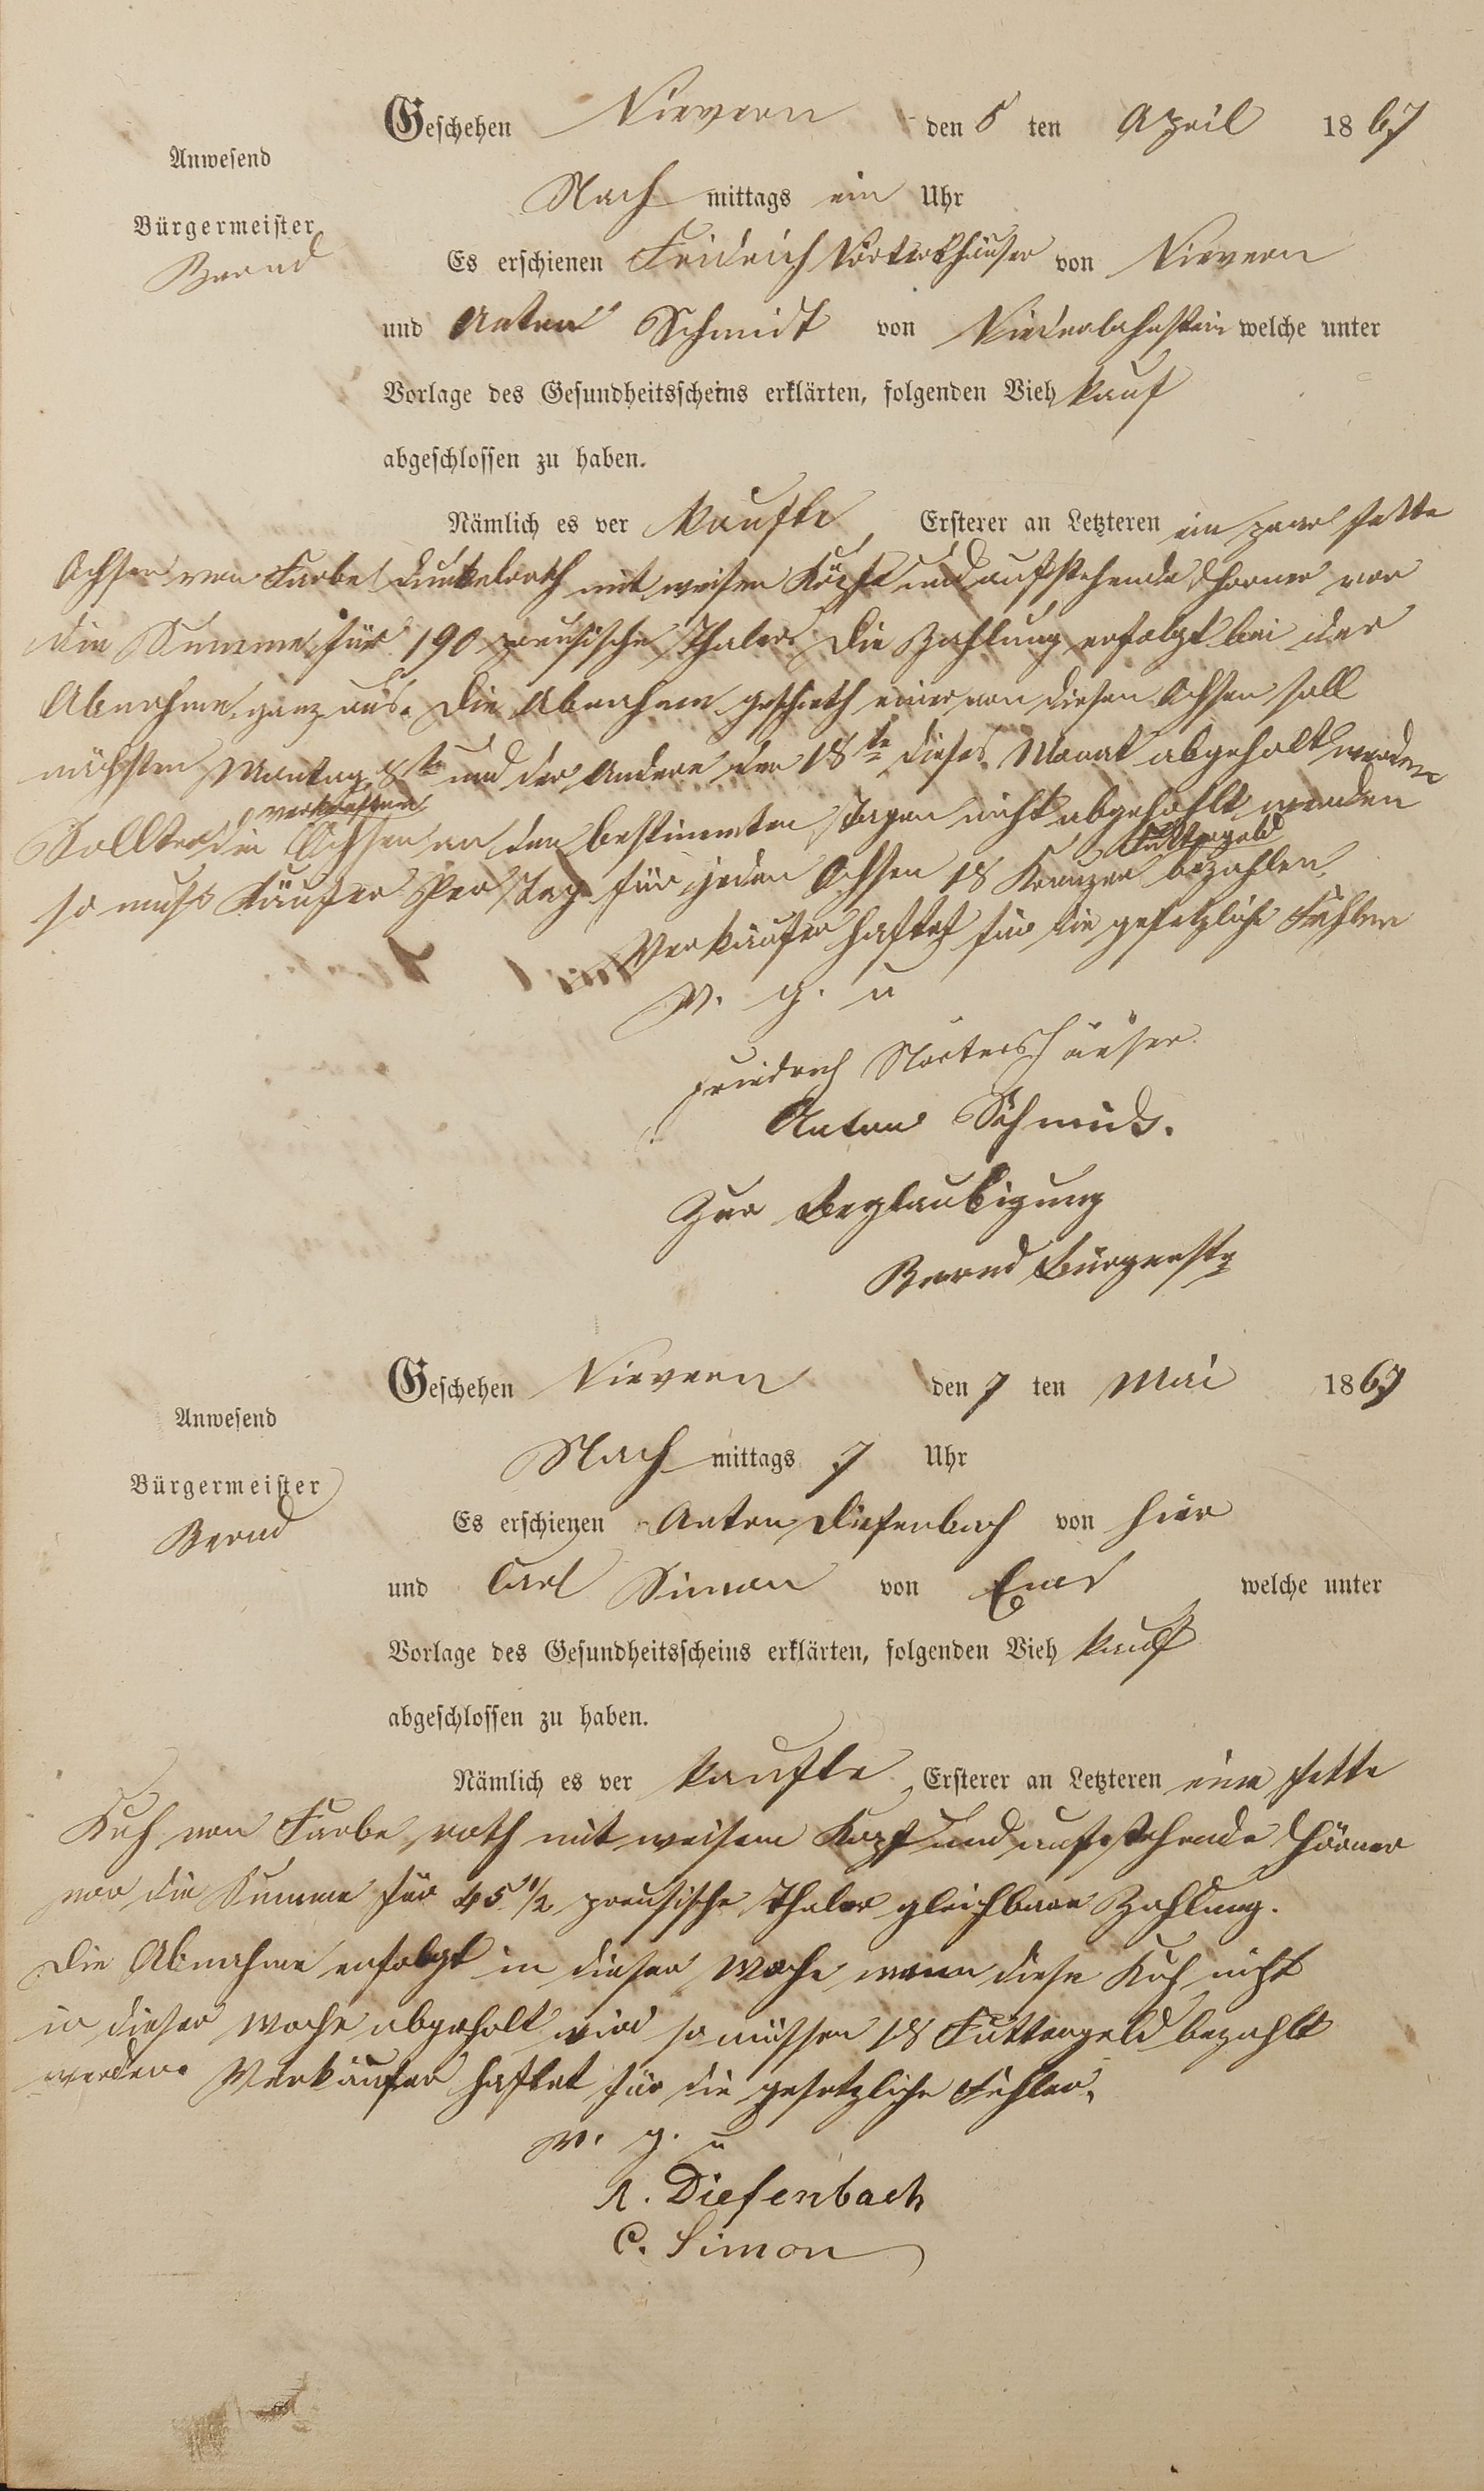 Geschehen Nievern den 5 ten April 1867
Anwesend
Nach mittags ein Uhr
Bürgermeister
Bernd
Es erschienen Fridrich Nörtershäuser von Nievern
und Anton Schmidt von Niederlahnstein welche unter
Vorlage des Gesundheitsscheins erklärten, folgenden Vieh kauf
abgeschlossen zu haben.
Nämlich es ver kaufte, Ersterer an Letzteren ein paar fette
Ochsen von Farbe dunkelroth mit weisen Köpfe und aufstehende Hörner vor
die Summe für 190 preusische Thaler die Zahlung erfolgt bei der
Abnahme ganz aus. Die Abnahme geschieth einer von diesen Ochsen soll
nächsten Montag 8te und der Andere den 18te dieses Monat abgeholt werden
verkauften
Sollten die Ochsen an den bestimmten Tagen nicht abgehohlt werden
Futtergeld
so muß Käufer Per Tag für jeden Ochsen 18 Kreuzer bezahlen.
Verkäufer haftet für die gesetzliche Fehler
V. g. u
Friedrich Nörtershäuser.
Anton Schmidt.
Zur Beglaubigung
Bernd Bürgerstr
Geschehen Nievern den 7 ten Mai 1867
Anwesend
Nach mittags 7 Uhr
Bürgermeister
Bernd
Es erschienen Anton Diefenbach von hier
und Carl Simon von Ems welche unter
Vorlage des Gesundheitsscheins erklärten, folgenden Vieh kauf
abgeschlossen zu haben.
Nämlich es ver kaufte, Ersterer an Letzteren eine fette
Kuh von Farbe roth mit weisem Kopf und aufstehende Hörner
vor die Summe für 45 1/2 preusische Thaler gleichbare Zahlung.
Die Abnahme erfolgt in dieser Woche wenn diese Kuh nicht
in dieser Woche abgeholt wird so müssen 18 Futtergeld bezahlt
werden. Verkäufer haftet für die gesetzliche Fehler.
V. g. u
A. Diefenbach
C. Simon